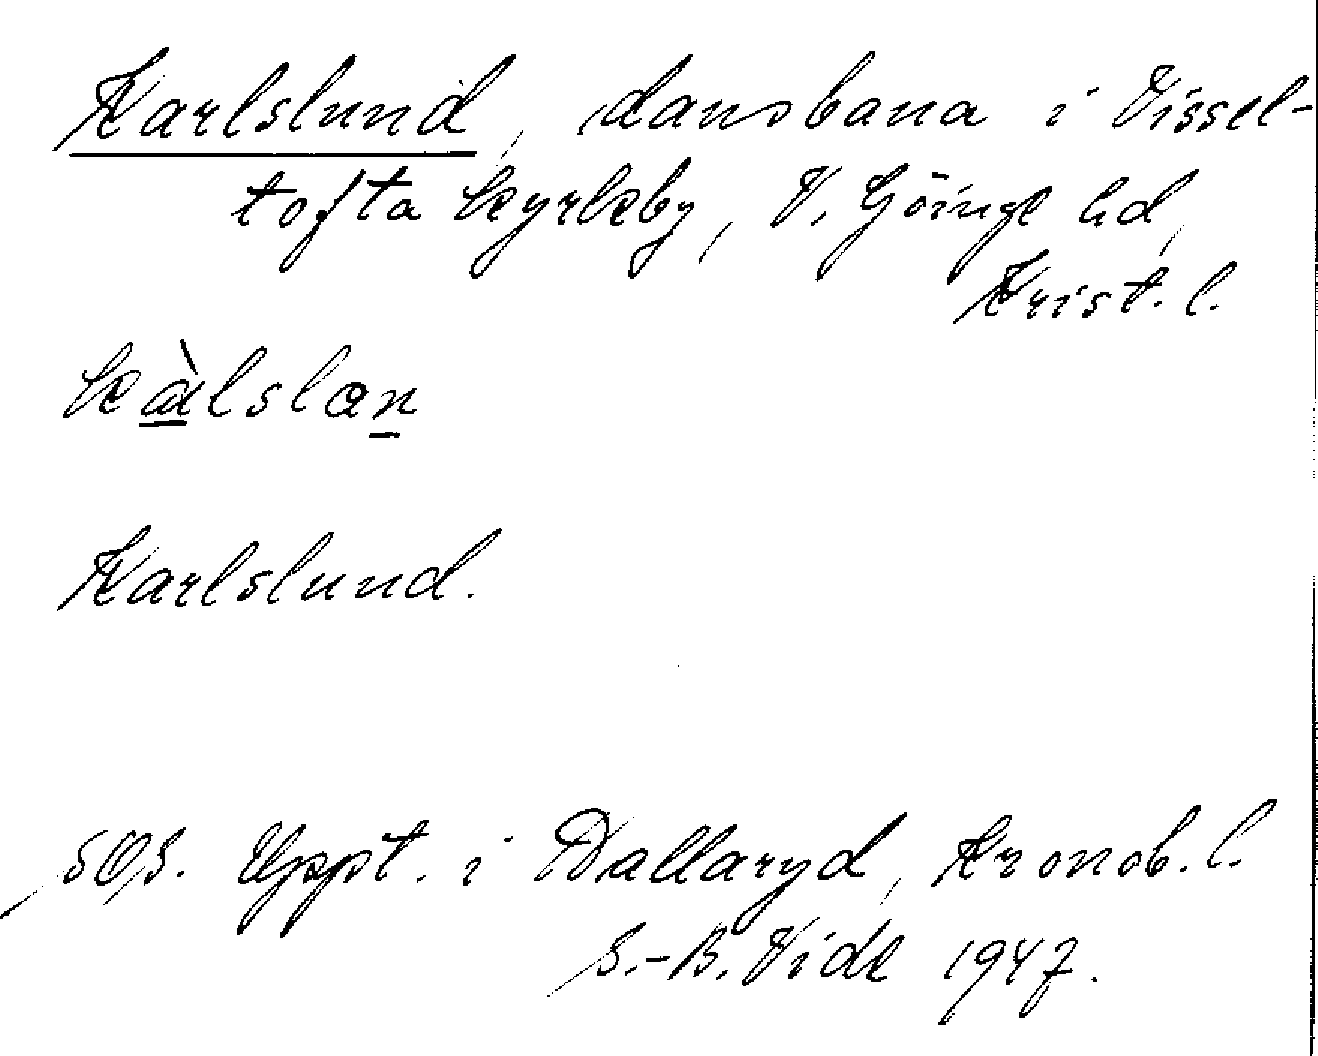 Karlslund, dansbana i Vissel-
tofta kyrkby, V. Göinge hd,
Krist. l.
kàlslan
Karlslund.
Uppt. i Dallaryd, Kronob. l.
S.-B. Vide 1947.